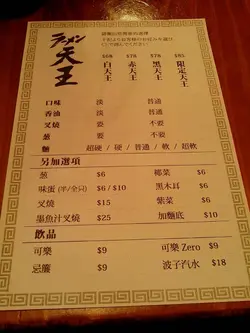 ラーメン
天王
請圈出您需要的選擇
$68 $78 $78 $85
白天王 赤天王 黑天王 限定天王
口味 淡 普通
香油 淡 普通
叉燒 要 不要
葱 要 不要
麵 超硬 / 硬 / 普通 / 軟 / 超軟
另加選項
葱 $6 椰菜 $6
味蛋 (半/全只) $6 / $10 黑木耳 $6
叉燒 $15 紫菜 $6
墨魚汁叉燒 $25 加麵底 $10
飲品
可樂 $9 可樂 Zero $9
忌廉 $9 波子汽水 $18